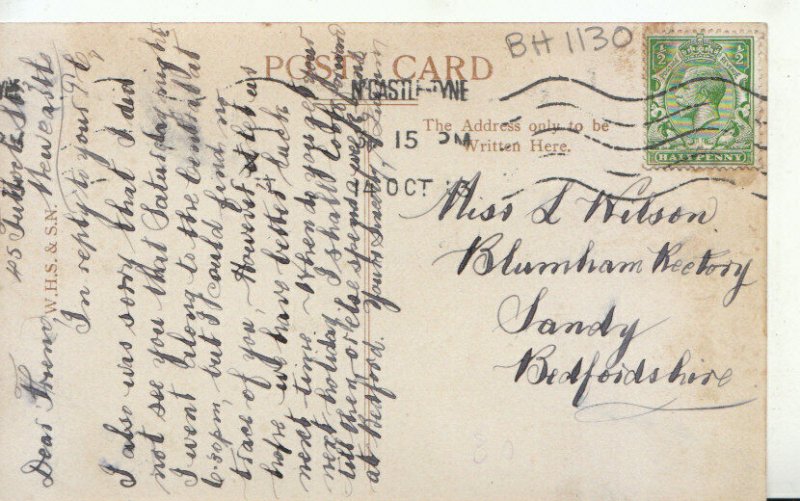 BH 1130
POST CARD
N'CASTLE-TYNE
15 PM
14 OCT
The Address only to be
Written Here.
HALFPENNY
1/2 1/2
W.H.S. & S.N.
Miss L Wilson
Blumham Rectory
Sandy
Bedfordshire
45
Newcastle
Dear Friend,
In reply to your P.C.
I also was sorry that I did
not see you that Saturday night
I went along to the Central at
6.30pm, but I could find no
trace of you, However let us
hope we have better luck
next time. When do you get your
next holiday, I shall look forward
till then, or else spend a week end
at Bedford. Yours Sincerely